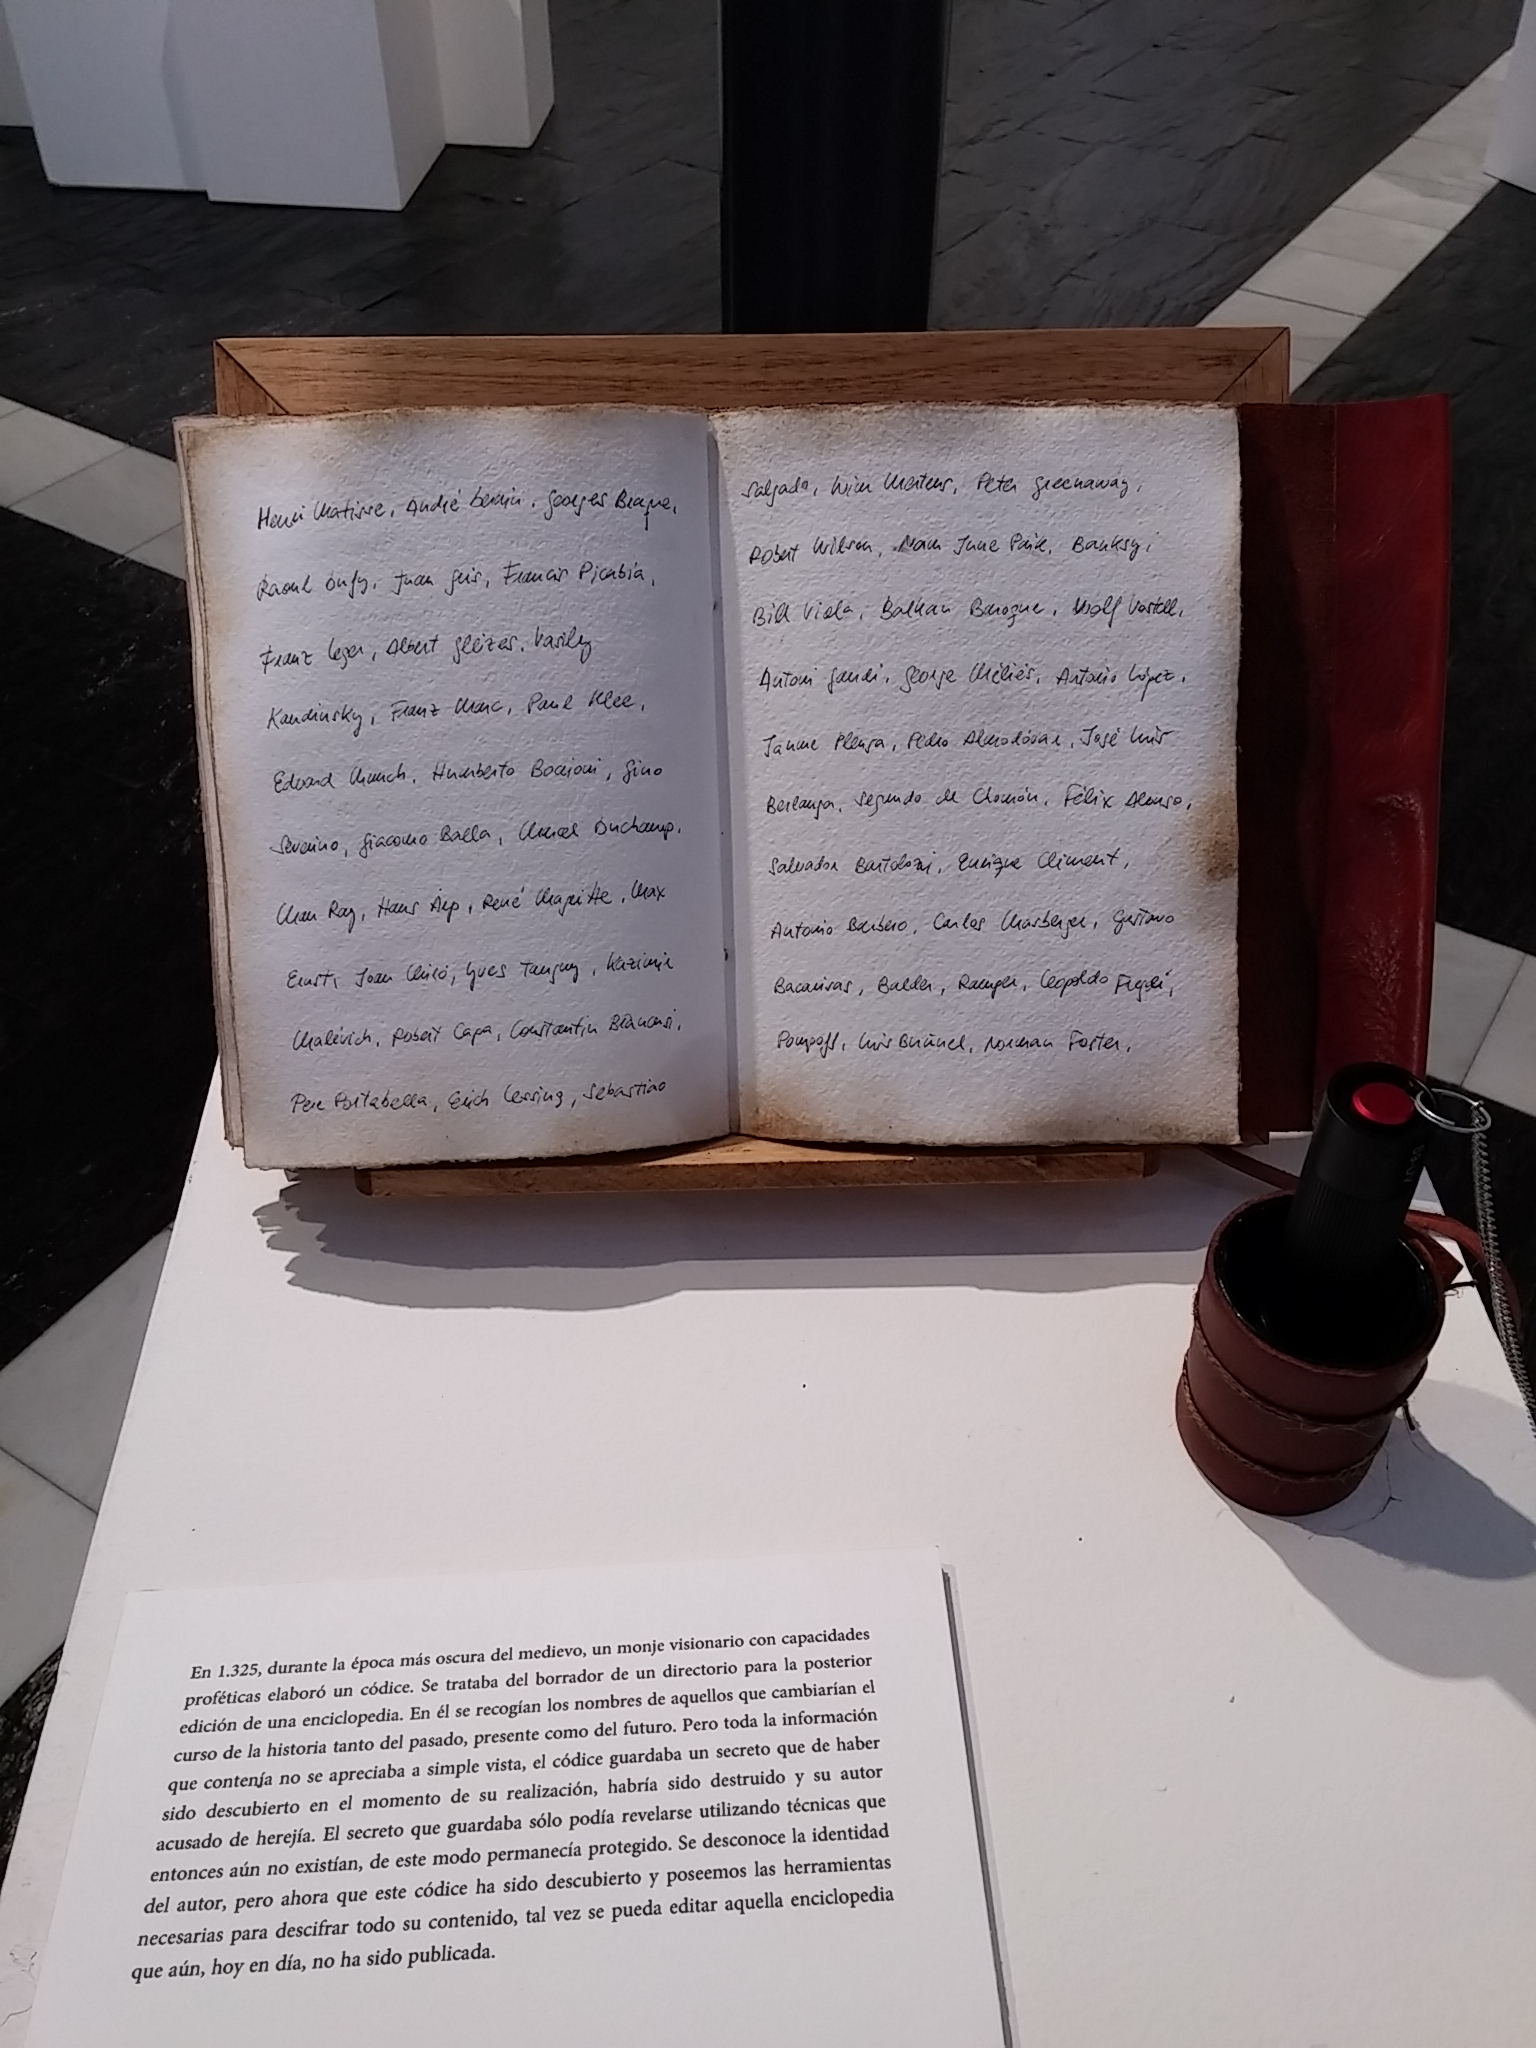 Henri Matisse, André Derain, Georges Braque,
Raoul Dufy, Juan Gris, Francis Picabia,
Franz Leger, Albert Gleizes, Vasiley
Kandinsky, Franz Marc, Paul Klee,
Edvard Munch, Humberto Boccioni, Gino
Severino, Giacomo Balla, Marcel Duchamp,
Man Ray, Hans Arp, René Magritte, Max
Ernst, Joan Miró, Yves Tanguy, Kazimir
Malévich, Robert Capa, Constantin Brancusi,
Pere Portabella, Erich Lessing, Sebastiao
Salgado, Wim Mertens, Peter Greenaway,
Robert Wilson, Nam June Paik, Banksy,
Bill Viola, Balkan Baroque, Wolf Vostell,
Antoni Gaudi, George Méliès, Antonio López,
Jaume Plensa, Pedro Almodóvar, José Luis
Berlanga, Segundo de Chomón, Félix Alonso,
Salvador Bartolozzi, Enrique Climent,
Antonio Barbero, Carlos Masberger, Gustavo
Bacarisas, Balder, Ramper, Leopoldo Fregoli,
Pompoff, Luis Buñuel, Norman Foster,
En 1.325, durante la época más oscura del medievo, un monje visionario con capacidades
proféticas elaboró un códice. Se trataba del borrador de un directorio para la posterior
edición de una enciclopedia. En él se recogían los nombres de aquellos que cambiarían el
curso de la historia tanto del pasado, presente como del futuro. Pero toda la información
que contenía no se apreciaba a simple vista, el códice guardaba un secreto que de haber
sido descubierto en el momento de su realización, habría sido destruido y su autor
acusado de herejía. El secreto que guardaba sólo podía revelarse utilizando técnicas que
entonces aún no existían, de este modo permanecía protegido. Se desconoce la identidad
del autor, pero ahora que este códice ha sido descubierto y poseemos las herramientas
necesarias para descifrar todo su contenido, tal vez se pueda editar aquella enciclopedia
que aún, hoy en día, no ha sido publicada.